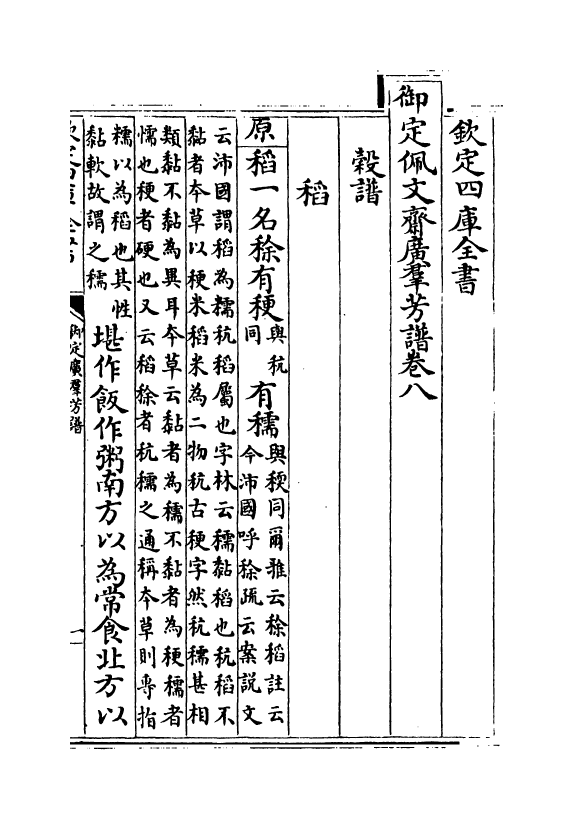 欽定四庫全書
御定佩文齋廣羣芳譜卷八
穀譜
稻
原稻一名稌有稉與秔同有穤與稬同爾雅云稌稻註云
今沛國呼稌疏云案説文
云沛國謂稻為穤秔稻屬也字林云穤黏稻也秔稻不
黏者夲草以稉米稻米為二物秔古稉字然秔穤甚相
類黏不黏為異耳夲草云黏者為穤不黏者為稉穤者
懦也稉者硬也又云稻稌者秔穤之通稱夲草則專指
糯以為稻也其性
黏軟故謂之穤堪作飯作粥南方以為常食北方以
御定廣羣芳譜